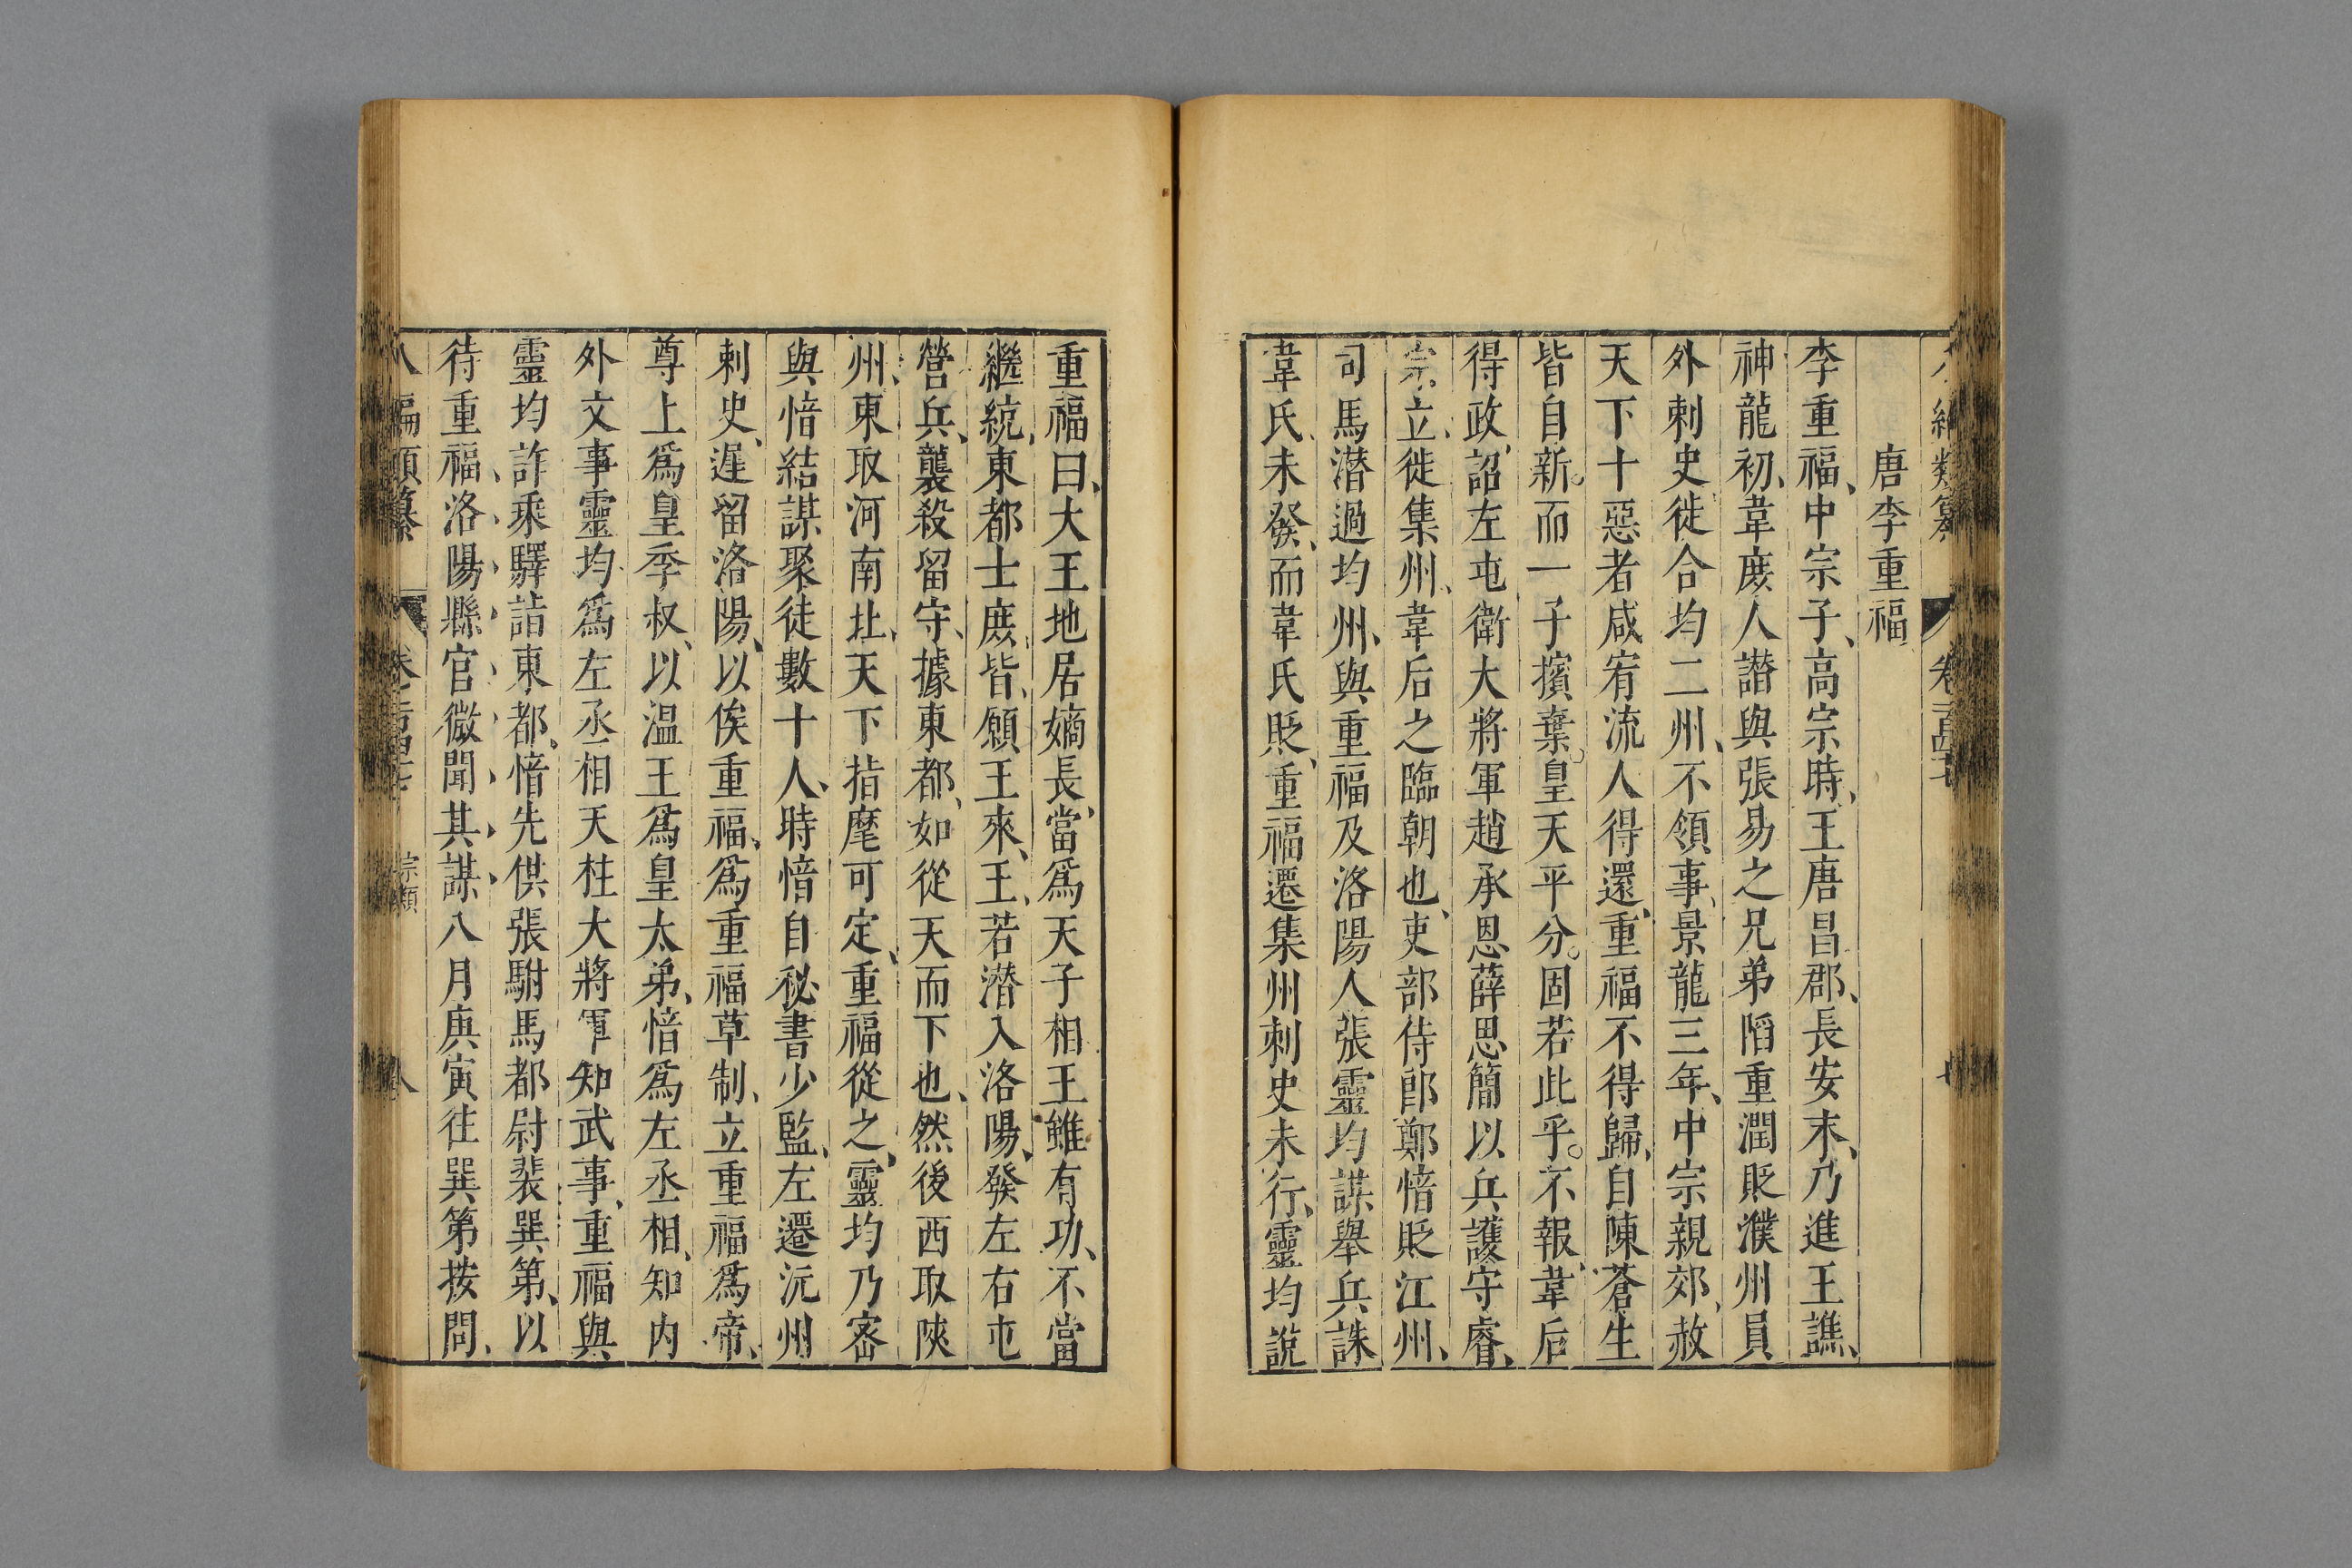 唐李重福
李重福、中宗子、高宗時、王唐昌郡、長安末、乃進王譙、
神龍初、韋庻人譛與張易之兄弟䧟重潤貶濮州員
外刺史徙合均二州、不領事、景龍三年、中宗親郊、赦
天下十惡者咸宥流人得還、重福不得歸、自陳蒼生
皆自新。而一子擯棄。皇天平分。固若此乎。不報、韋后
得政、詔左屯衛大將軍趙承恩薛思簡以兵護守睿、
宗立、徙集州、韋后之臨朝也、吏部侍郎鄭愔貶江州、
司馬潜過均州、與重福及洛陽人張靈均謀舉兵誅
韋氏、未發、而韋氏貶、重福遷集州刺史未行、靈均說
重福曰、大王地居嫡長、當爲天子相王雖有功、不當
繼統、東都士庻、皆願王來、王若潜入洛陽、發左右屯
營兵、襲殺留守、據東都、如從天而下也、然後西取陝
州、東取河南北、天下指麾可定、重福從之、靈均乃密
與愔結謀聚徒數十人、時愔自秘書少監、左遷沅州
刺史、遲留洛陽、以俟重福、爲重福草制、立重福爲帝、
尊上爲皇季叔、以温王爲皇太弟、愔爲左丞相、知内
外文事靈均爲左丞相天柱大將軍知武事、重福與
靈均詐乘驛詣東都、愔先供張駙馬都尉裴巽第、以
待重福、洛陽縣官微聞其謀、八月庚寅往巽第按問、
八編類纂
宗類
八